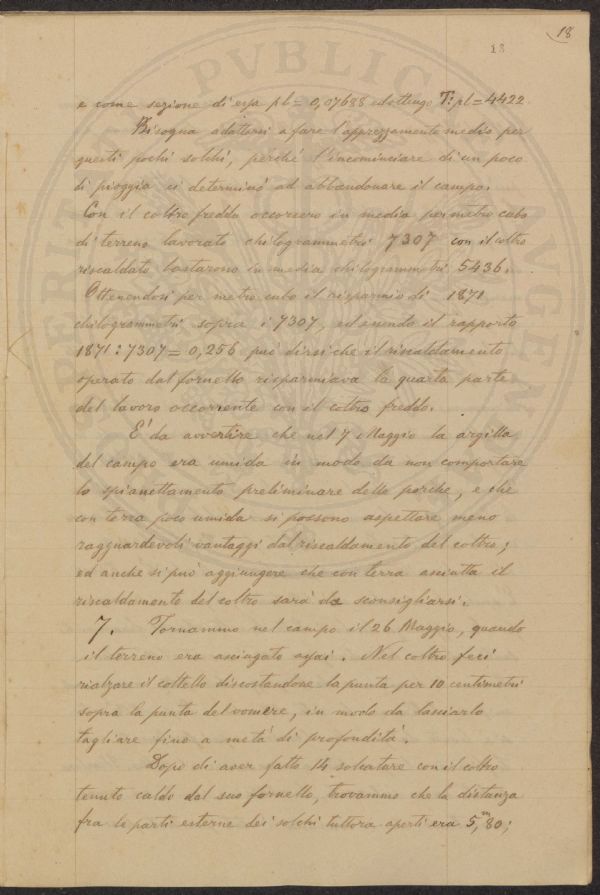 18
18
e come sezione di essa pl = 0,07688 ed ottengo T:pl = 4422
Bisogna adattarsi a fare l'apprezzamento medio per
questi pochi solchi, perché l'incominciare di un poco
di pioggia ci determinò ad abbandonare il campo.
Con il coltro freddo occorsero in media per metro cubo
di terreno lavorato chilogrammetri 7307 con il coltro
riscaldato bastarono in media chilogrammetri 5436.
Ottenendosi per metro cubo il risparmio di 1871
chilogrammetri sopra i 7307, ed essendo il rapporto
1871:7307 = 0,256 può dirsi che il riscaldamento
operato dal fornello risparmiava la quarta parte
del lavoro occorrente con il coltro freddo.
E' da avvertire che nel 7 Maggio la argilla
del campo era umida in modo da non comportare
lo spianettamento preliminare delle porche, e che
con terra poco umida si possono aspettare meno
ragguardevoli vantaggi dal riscaldamento del coltro;
ed anche si può aggiungere che con terra asciutta il
riscaldamento del coltro sarà da sconsigliarsi.
7. Tornammo nel campo il 26 Maggio, quando
il terreno era asciugato assai. Nel coltro feci
rialzare il coltello discostandone la punta per 10 centimetri
sopra la punta del vomere, in modo da lasciarlo
tagliare fino a metà di profondità.
Dopo di aver fatto 14 solcature con il coltro
tenuto caldo dal suo fornello, trovammo che la distanza
fra le parti esterne dei solchi tuttora aperti era 5,m80;